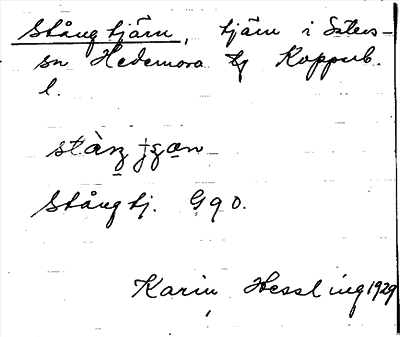 Stångtjärn, tjärn i Säters-
sn Hedemora tg Koppub.
l.
Stångtj. G90.
Karin Hessling 1929